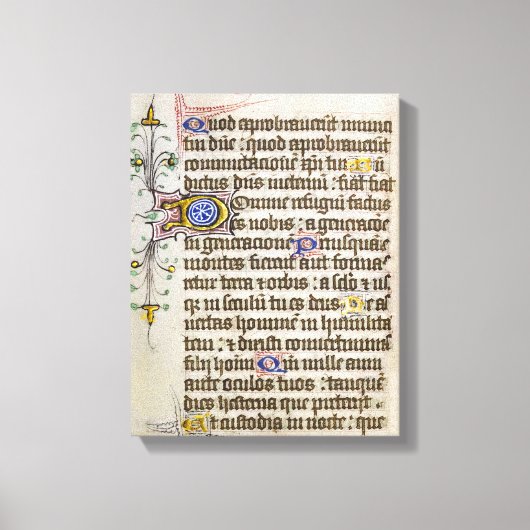 Quod exprobraverūt inimici
tui dñe: quod exprobraverūt
commutacionē xp̄i tui Bñ
dictus dñs in eternū: fiat fiat
Domine refugiū factus
es nobis: a generacōe
in generacione Priusquā
montes fierent aut forma
retur terra et orbis: a sclō et us
q3 in seculū tu es deus Ne a
vertas hominē in humilita
tem: et dixisti convertimini
filii hoīm Qm̄ mille anni
ante oculos tuos: tanquā
dies hesterna que preterijt.
Et custodia in nocte: que